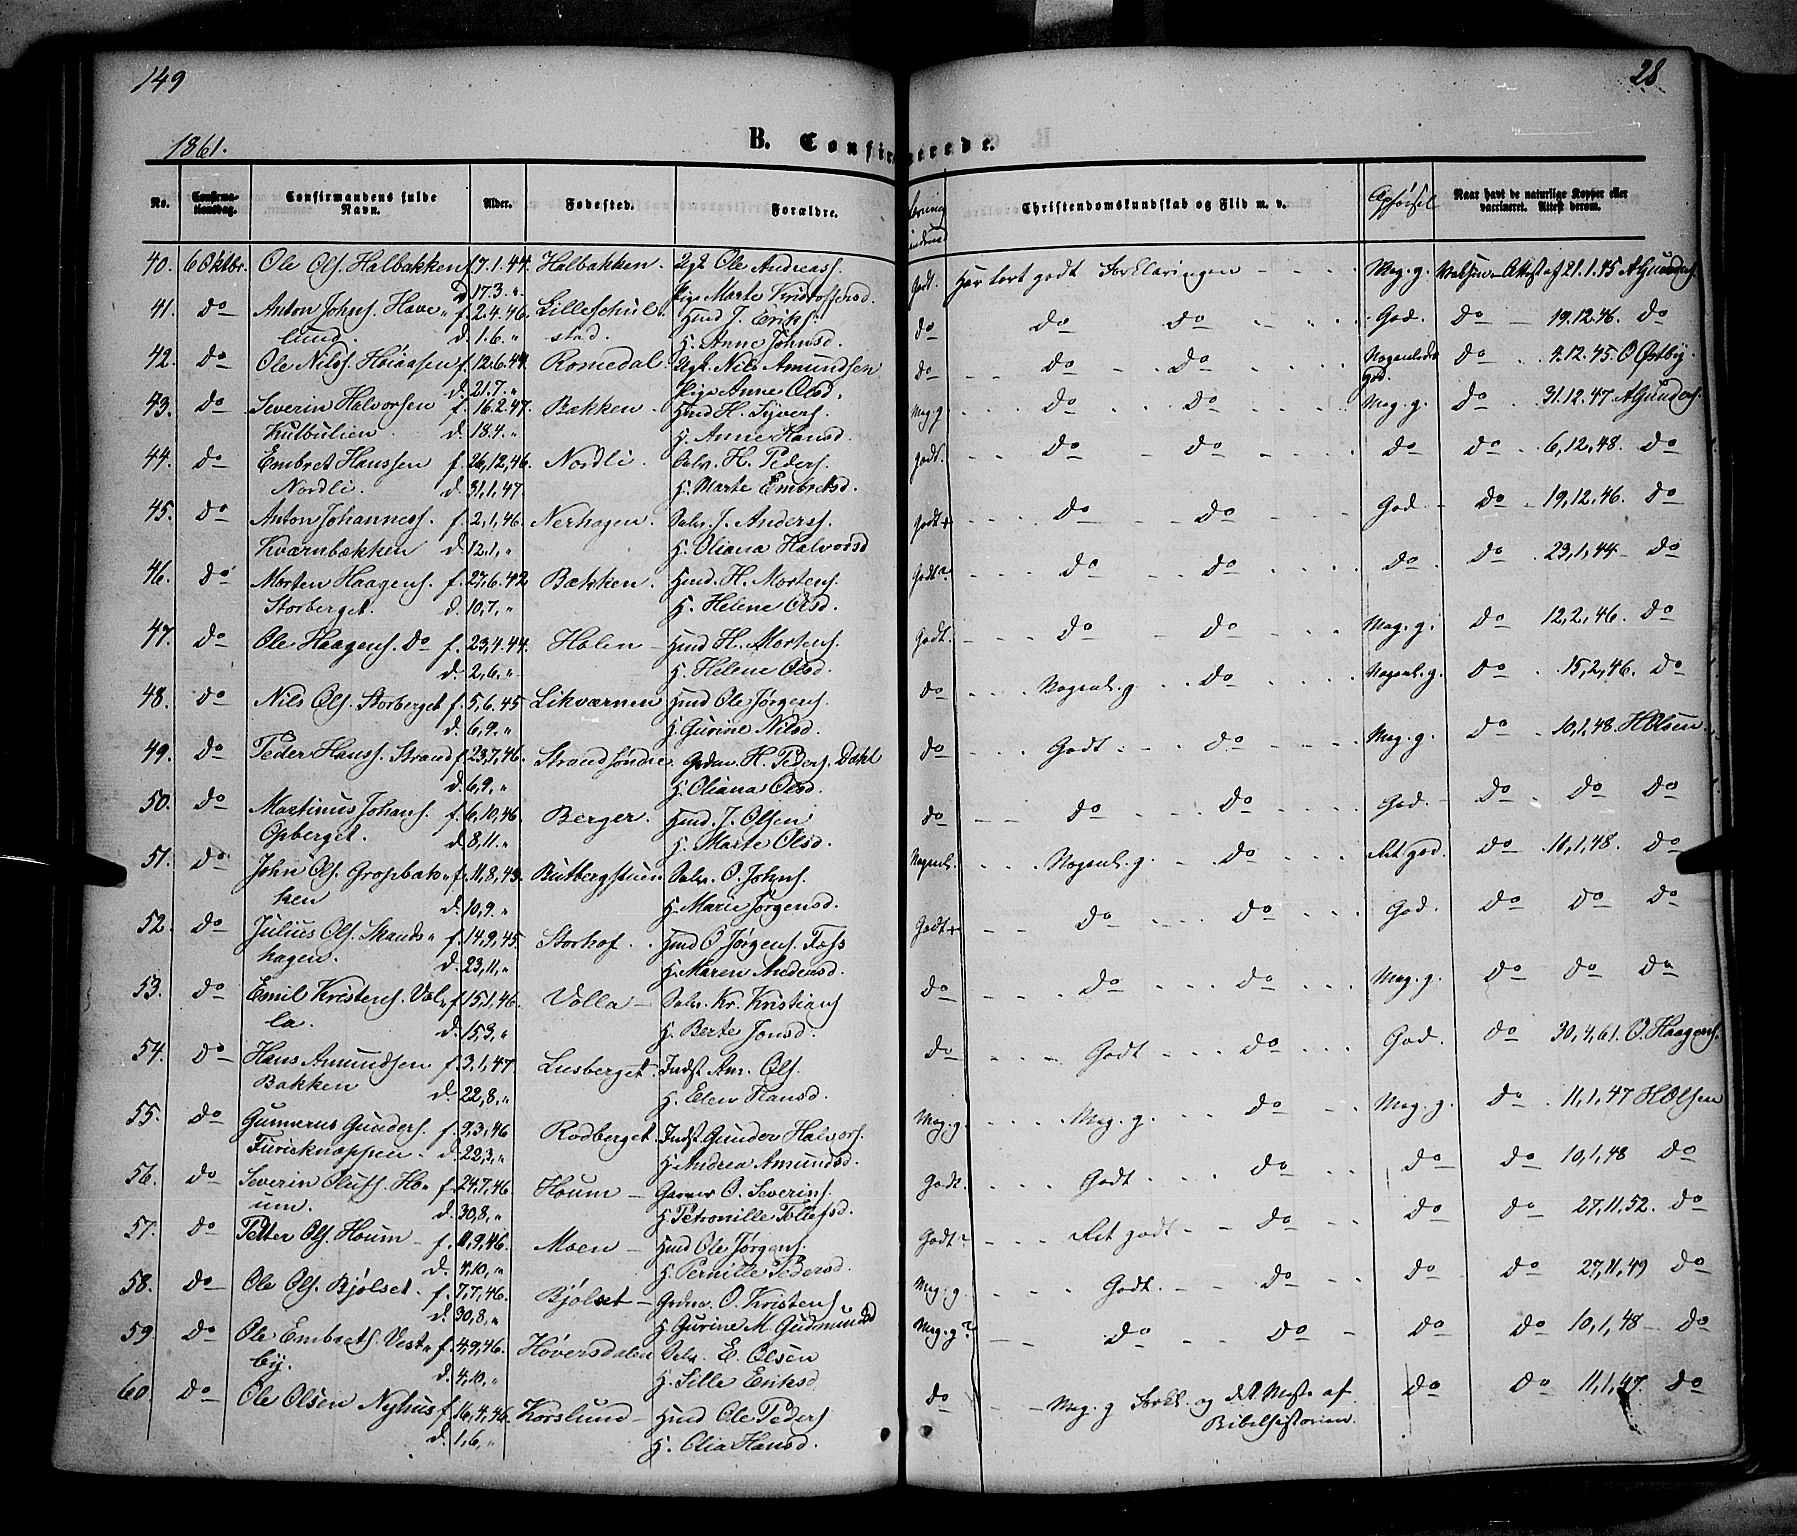 149
28
1861.
B. Confirmerede.
No.
Confirma-
tionsdag.
Confirmandens fulde
Navn.
Alder.
Fødested.
Forældre.
Christendomskundskab og Flid m. v.
Opførsel
Naar havt de naturlige Kopper eller
vaccineret. Attest derom.
40. 6 Oktbr. Ole Ols. Halbakken f. 7.1.44. Halbakken. Ugt Ole Andreass. Godt. Har lært godt Forklaringen Meg. g. Attest af 21.1.45 A Gunders.
D. 17.3. „ Pige Marte Kristoffersd.
41. do Anton Johns. Have- f. 2.4.46. Lilleschul- Hmd J. Eriks. do do do God. do 19.12.46. do
lund. d. 1.6. „ stad. H. Anne Johnsd.
42. do Ole Nilss. f. 12.6.44 Romedal. Ugt. Nils Amundsen do do do Nogenlede do 4.12.45 O Østby.
d. 21.7. „ Pige Anne Olsd. god.
43. do Severin Halvorsen f. 16.2.47. Bækken Hmd H. Syvers. Meg. g do do Meg. g. do 31.12.47 A Gunders.
Kulbulien. d. 18.4. „ H. Anne Hansd.
44. do Embret Hanssen f. 26,12,46. Nordli. Selv. H. Peders. Godt. do do do do 6,12,48. do
Nordli. d. 31,1,47. H. Marte Embretsd.
45. do Anton Johanness. f. 2,1,46. Nerhagen. Selv. J. Anders. Godt+ do do God. do 19,12,46. do
Kværnbækken d. 12,1, „ H. Oliana Halvorsd
46. do Morten Haagens. f. 27,6.42 Bækken. Hmd. H. Mortens. Godt? do do do. do 23,1,44 do
Storberget. d. 10,7, „ H. Helene Olsd.
47. do Ole Haagens. do f. 23,4.44. Holen Hmd H. Mortens. Godt. do do Meg. g. do 12,2,46. do
d. 2,6, „ H. Helene Olsd.
48. do Nils Ols. Storberget f. 5,6.45 Likværnen Hmd Ole Jørgens. do Nogenl. g. do Nogenl. g. do 15,2,46. do
d. 6,9, „ H. Gurine Nilsd.
49. do Peder Hanss. Strand f. 23,7,46. Strand søndre H. Peders. Dahl do Godt do Meg. g. do 10,1,48. H Olsen
d. 6,9, „ H. Oliana Olsd.
50. do Martinus Johans. f. 6,10,46 Berger. Hmd. J. Olsen do do do God. do do do
Opberget. d. 8,11. „ H. Marte Olsd.
51. do John Ols. Gropbak- f. 11,8,43. Selv. O. Johns. Nogenl. Nogenl. g. do Ret god. do 11,1,48. do
ken d. 10,9. „ H. Marie Jørgensd.
52. do Julius Ols. Skands- f. 14,9,45. Storhof. Hmd O Jørgens. Godt+ do do God. do do do
hagen. d. 23,11, „ H. Maren Andersd.
53. do Emil Kristens. Vol- f. 15,1,46. Volla Selv. Kr. Kristians do do do Meg. g. do do do
la. d. 15,3, „ H. Berte Jonsd.
54. do Hans Amundsen f. 3,1,47. Lusberget. Indst Am. Ols. do Godt do God. do 30,4,61. O. Haagens.
Bakken d. 22,8, „ H. Elen Hansd.
55. do Gunnerus Gunders. f. 9,3,46 Rodberget. Indst Gunder Halvors. Meg. g. Meg. g. do Meg. g. do 11,1,47 H Olsen
d. 22,3, „ H. Andrea Amundsd.
56. do Severin Oluss. Ho- f. 24,7,46. Houm O. Severins. Godt. Godt do do do 10,1,48 do
um. d. 30,8, „ H. Petronille Tollefsd.
57. do Petter Ols. Houm f. 11,9,46. Moen Hmd Ole Jørgens. Godt? Ret godt do do do 27,11,52. do
d. 4,10, „ H. Pernille Pedersd.
58. do Ole Ols. Bjølset f. 7,7,46. Bjølset O. Kristens Meg. g. Godt. do do do 27,11,49 do
d. 30,8, „ H. Gurine M. Gudmundsd
59. do Ole Embrets. Vest- f. 4,9,46. Høversdalen Selv. E. Olsen Meg. g? do do do do 10,1,48 do
by. d. 4,10, „ H. Sille Eriksd
60. do Ole Olsen Nyhus f. 16,4,46. Korslund Hmd Ole Peders do Meg. g Forkl. og det Meste af do do 11,1,47. do
d. 1,6, „ H. Olia Hansd. Bibelhistorien.